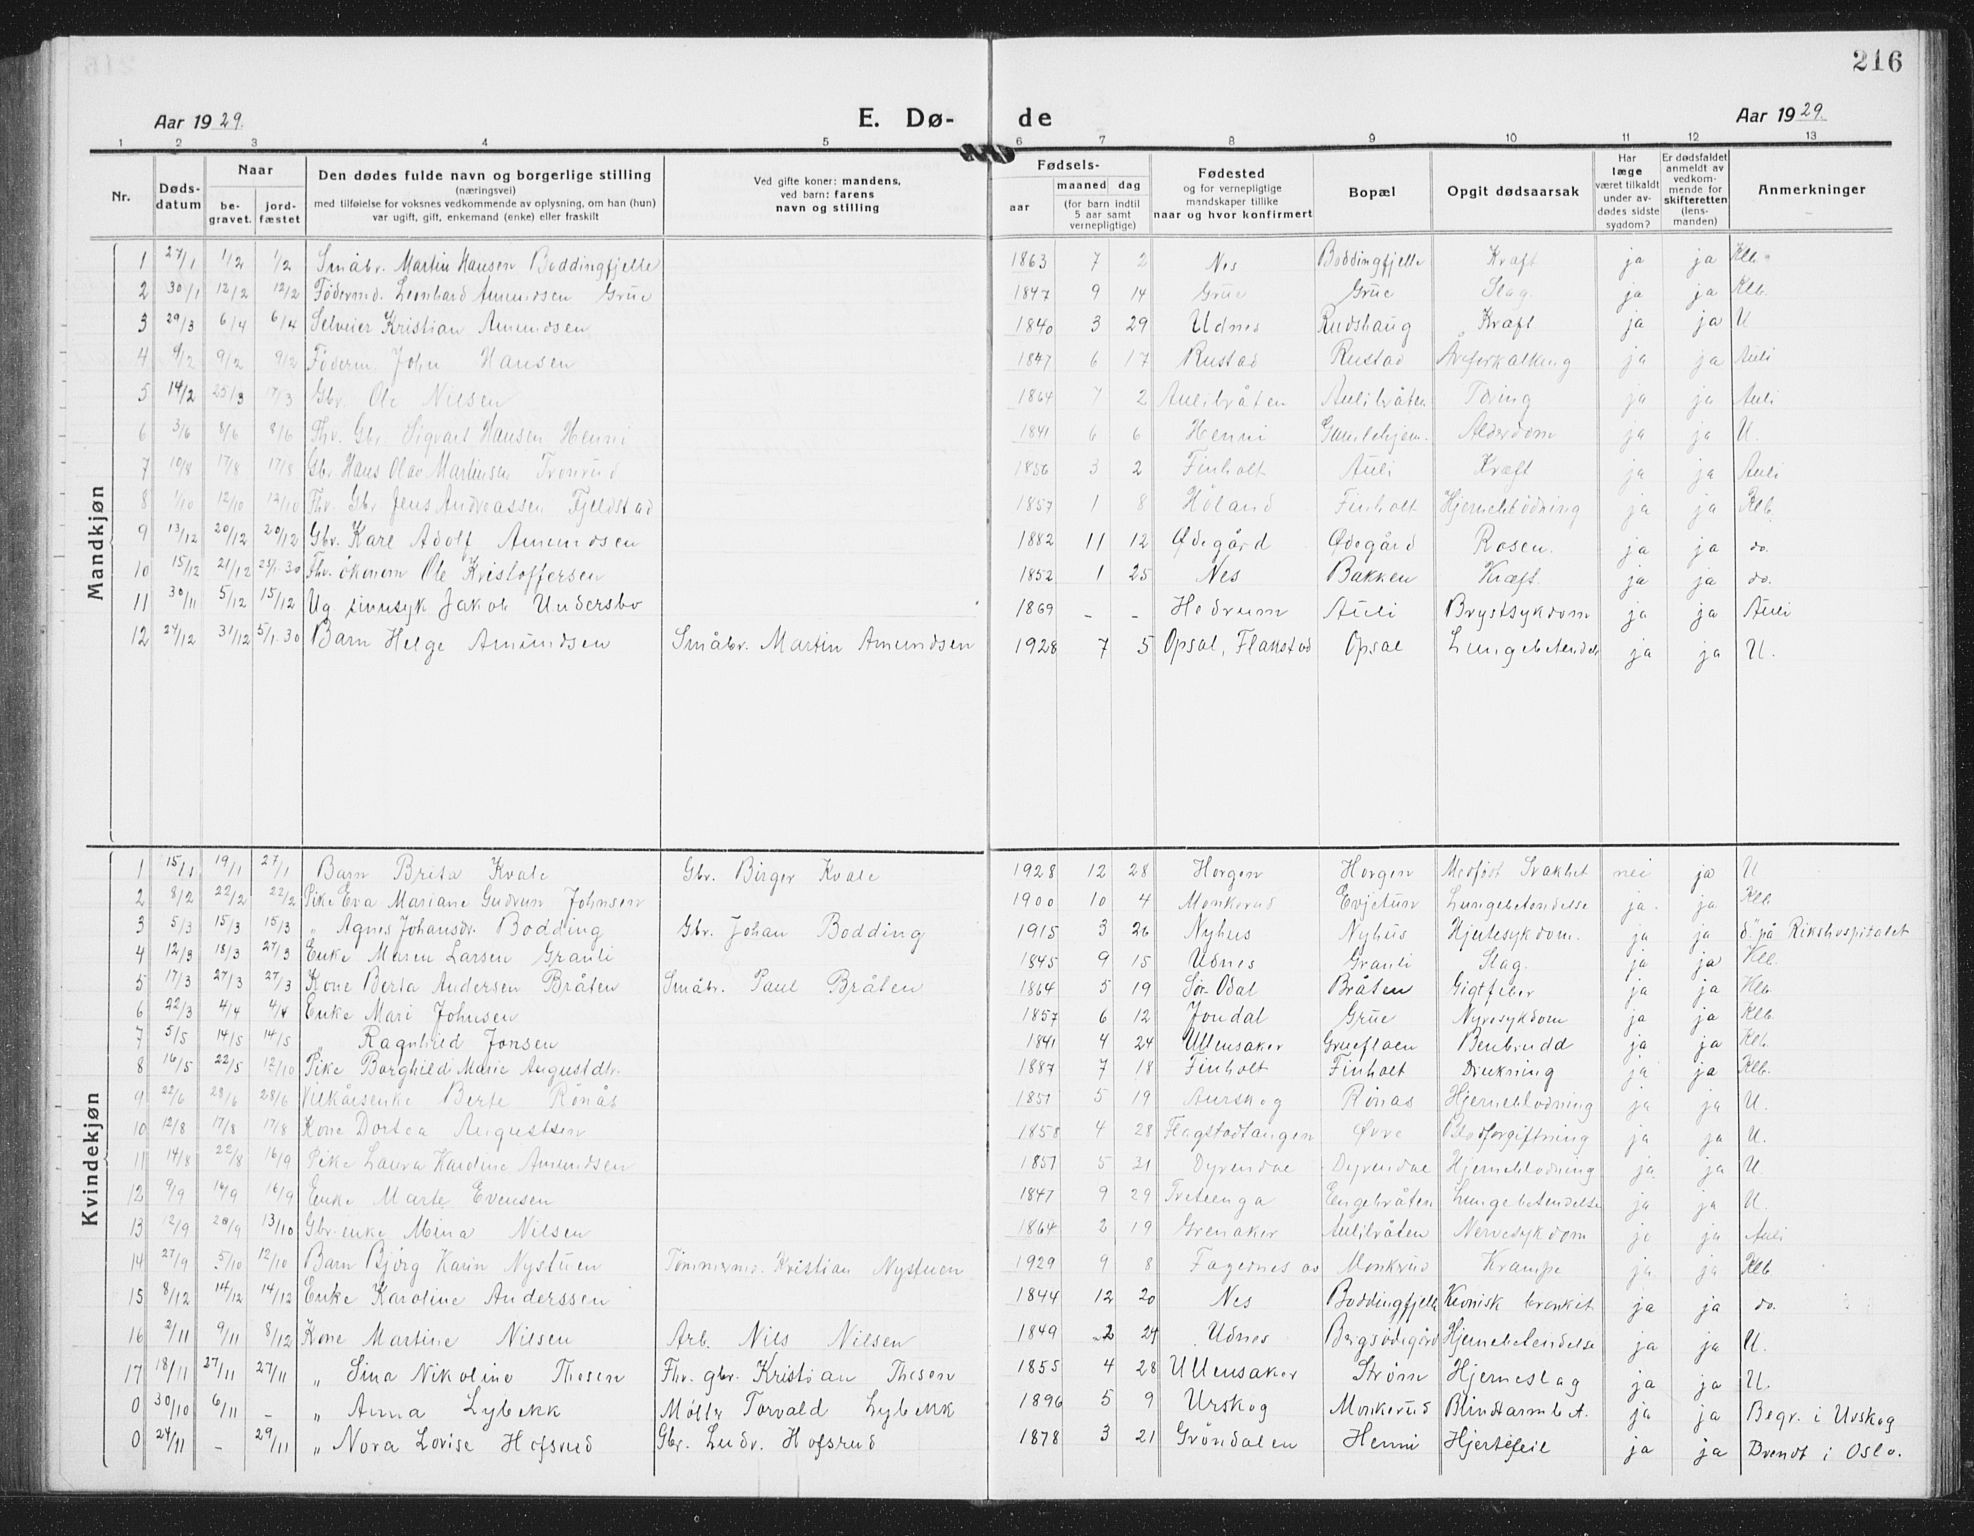 216
Aar 1929. E. Dø- de Aar 1929.
1 2 3 4 5 6 7 8 9 10 11 12 13
Nr. Døds-datum Naar be-gravet. jord-fæstet Den dødes fulde navn og borgerlige stilling (næringsvei) med tilføielse for voksnes vedkommende av oplysning, om han (hun) var ugift, gift, enkemand (enke) eller fraskilt Ved gifte koner: mandens, ved barn: farens navn og stilling Fødsels- aar maaned dag (for barn indtil 5 aar samt vernepligtige) Fødested og for vernepligtige mandskaper tillike naar og hvor konfirmert Bopæl Opgit dødsaarsak Har læge været tilkaldt under av-dødes sidste sygdom? Er dødsfaldet anmeldt av vedkom-mende for skifteretten (lens-manden) Anmerkninger
Mandkjøn
1 27/1 1/2 1/2 Småbr. Martin Hansen Boddingfjelle 1863 7 2 Nes Boddingfjelle Kræft ja ja Klb.
2 30/1 12/2 12/2 Fødermd. Leonhard Amundsen Grue 1847 9 14 Grue Grue Slag. ja ja Klb.
3 29/3 6/4 6/4 Selveier Kristian Amundsen 1840 3 29 Udnes Rudshaug Kræft ja ja U
4 9/2 9/2 Føderm John Hansen 1847 6 17 Rustad Rustad Åreforkalkning ja ja Auli
5 14/2 25/3 17/3 Gbr. Ole Nilsen 1864 7 2 Aulibråten Aulibråten Tæring ja ja Auli
6 3/6 8/6 8/6 Fhv. Gbr Sigvart Hansen Henni 1841 6 6 Henni Gamlehjem. Alderdom ja ja U.
7 10/8 17/8 17/8 Gbr. Hans Olav Martinsen Tronrud 1856 3 2 Finholt Auli Kræft ja ja Auli
8 1/10 12/10 12/10 Fhv. Gbr Jens Andreassen Fjeldstad 1857 1 8 Høland Finholt Hjerneblødning ja ja Klb.
9 13/12 20/12 20/12 Gbr. Karl Adolf Amundsen 1882 11 12 Ødegård Ødegård Rosen. ja ja do.
10 15/12 21/12 Fhv. økonom Ole Kristoffersen 1852 1 25 Nes Bakken Kræft. ja ja do.
11 30/11 5/12 15/12 Ug sinnsyk Jakob Undersbo 1869 - - Hedrum Auli Brystsykdom ja ja Auli
12 27/12 31/12 5/1 30 Barn Helge Amundsen Småbr. Martin Amundsen 1928 7 5 Opsal, Flakstad Opsal Lungebetændels ja ja U.
Kvindekjøn
1 15/1 19/1 27/1 Barn Brita Kvale Gbr. Birger Kvale 1928 12 28 Horgen Horgen Medfødt Svakhet nei ja U
2 8/2 22/2 22/2 Pike Eva Mariane Gudrun Johnsen 1900 10 4 Monkerud Evjetun Lungebetendelse ja. ja Klb.
3 5/3 15/3 15/3 " Agnes Johansdr. Bodding Gbr. Johan Bodding 1915 3 26 Nyhus Nyhus Hjertesykdom. ja ja d. på Rikshospitalet
4 12/3 18/3 27/3 Enke Maren Larsen Grauli 1845 9 15 Udnes Grauli Slag. ja ja Klb.
5 17/3 27/3 27/3 Kone Berta Andersen Bråten Småbr. Paul Bråten 1864 5 19 Sør-Odal Bråten Gigtfeber ja ja Klb.
6 22/3 4/4 4/4 Enke Mari Johnsen 1857 6 12 Jondal Grue Nyresykdom ja ja Klb.
7 5/5 14/5 14/5 " Ragnhild Jonsen 1841 4 24 Ullensaker Grueflaen Benbrudd ja ja Klb.
8 16/5 22/5 12/10 Pike Borghild Marie Augustdtr. 1887 7 18 Finholt Finholt Drukning ja ja Klb.
9 22/6 28/6 28/6 Vilkårsenke Berte Rønås 1851 5 19 Aurskog Rønås Hjerneblødning ja ja U.
10 12/8 17/8 17/8 Kone Dortea Augustsen 1858 4 28 Flagstadtangen Øvre Blodforgiftning ja ja U.
11 14/8 22/8 16/9 Pike Laura Karoline Amundsen 1851 5 31 Dyrendal Dyrendal Hjerneblødning ja ja U
12 9/9 14/9 16/9 Enke Marte Evensen 1847 9 29 Treteenga Engebråten Lungebetændelse ja ja U.
13 12/9 20/9 13/10 Gbr.enke Mina Nilsen 1864 2 19 Grenaker Aulibråten Nervesykdom ja ja Auli
14 27/9 5/10 12/10 Barn Bjørg Karin Nystuen Tømmermd. Kristian Nystuen 1929 9 8 Fagernes Monkrud Krampe ja ja Klb
15 8/12 14/12 14/12 Enke Karoline Anderssen 1844 12 20 Nes Boddingfjelle Kronisk bronkit ja ja do.
16 2/11 9/11 8/12 Kone Martine Nilsen Arb. Nils Nilsen 1849 2 24 Udnes Bergsødegård Hjernebetendelse ja ja U.
17 18/11 27/11 27/11 " Sina Nikoline Thesen Fhv. gbr. Kristian Thesen 1855 4 28 Ullensaker Strøm Hjerneslag ja ja U.
0 30/10 6/11 - " Anna Lybekk Møller Torvald Lybekk 1896 5 9 Urskog Monkerud Blindtarmbet. ja ja Begr. i Urskog
0 24/11 - 29/11 " Nora Lovise Hofsrud Gbr. Ludv. Hofsrud 1878 3 21 Grøndalen Henni Hjertefeil ja ja Brendt i Oslo.